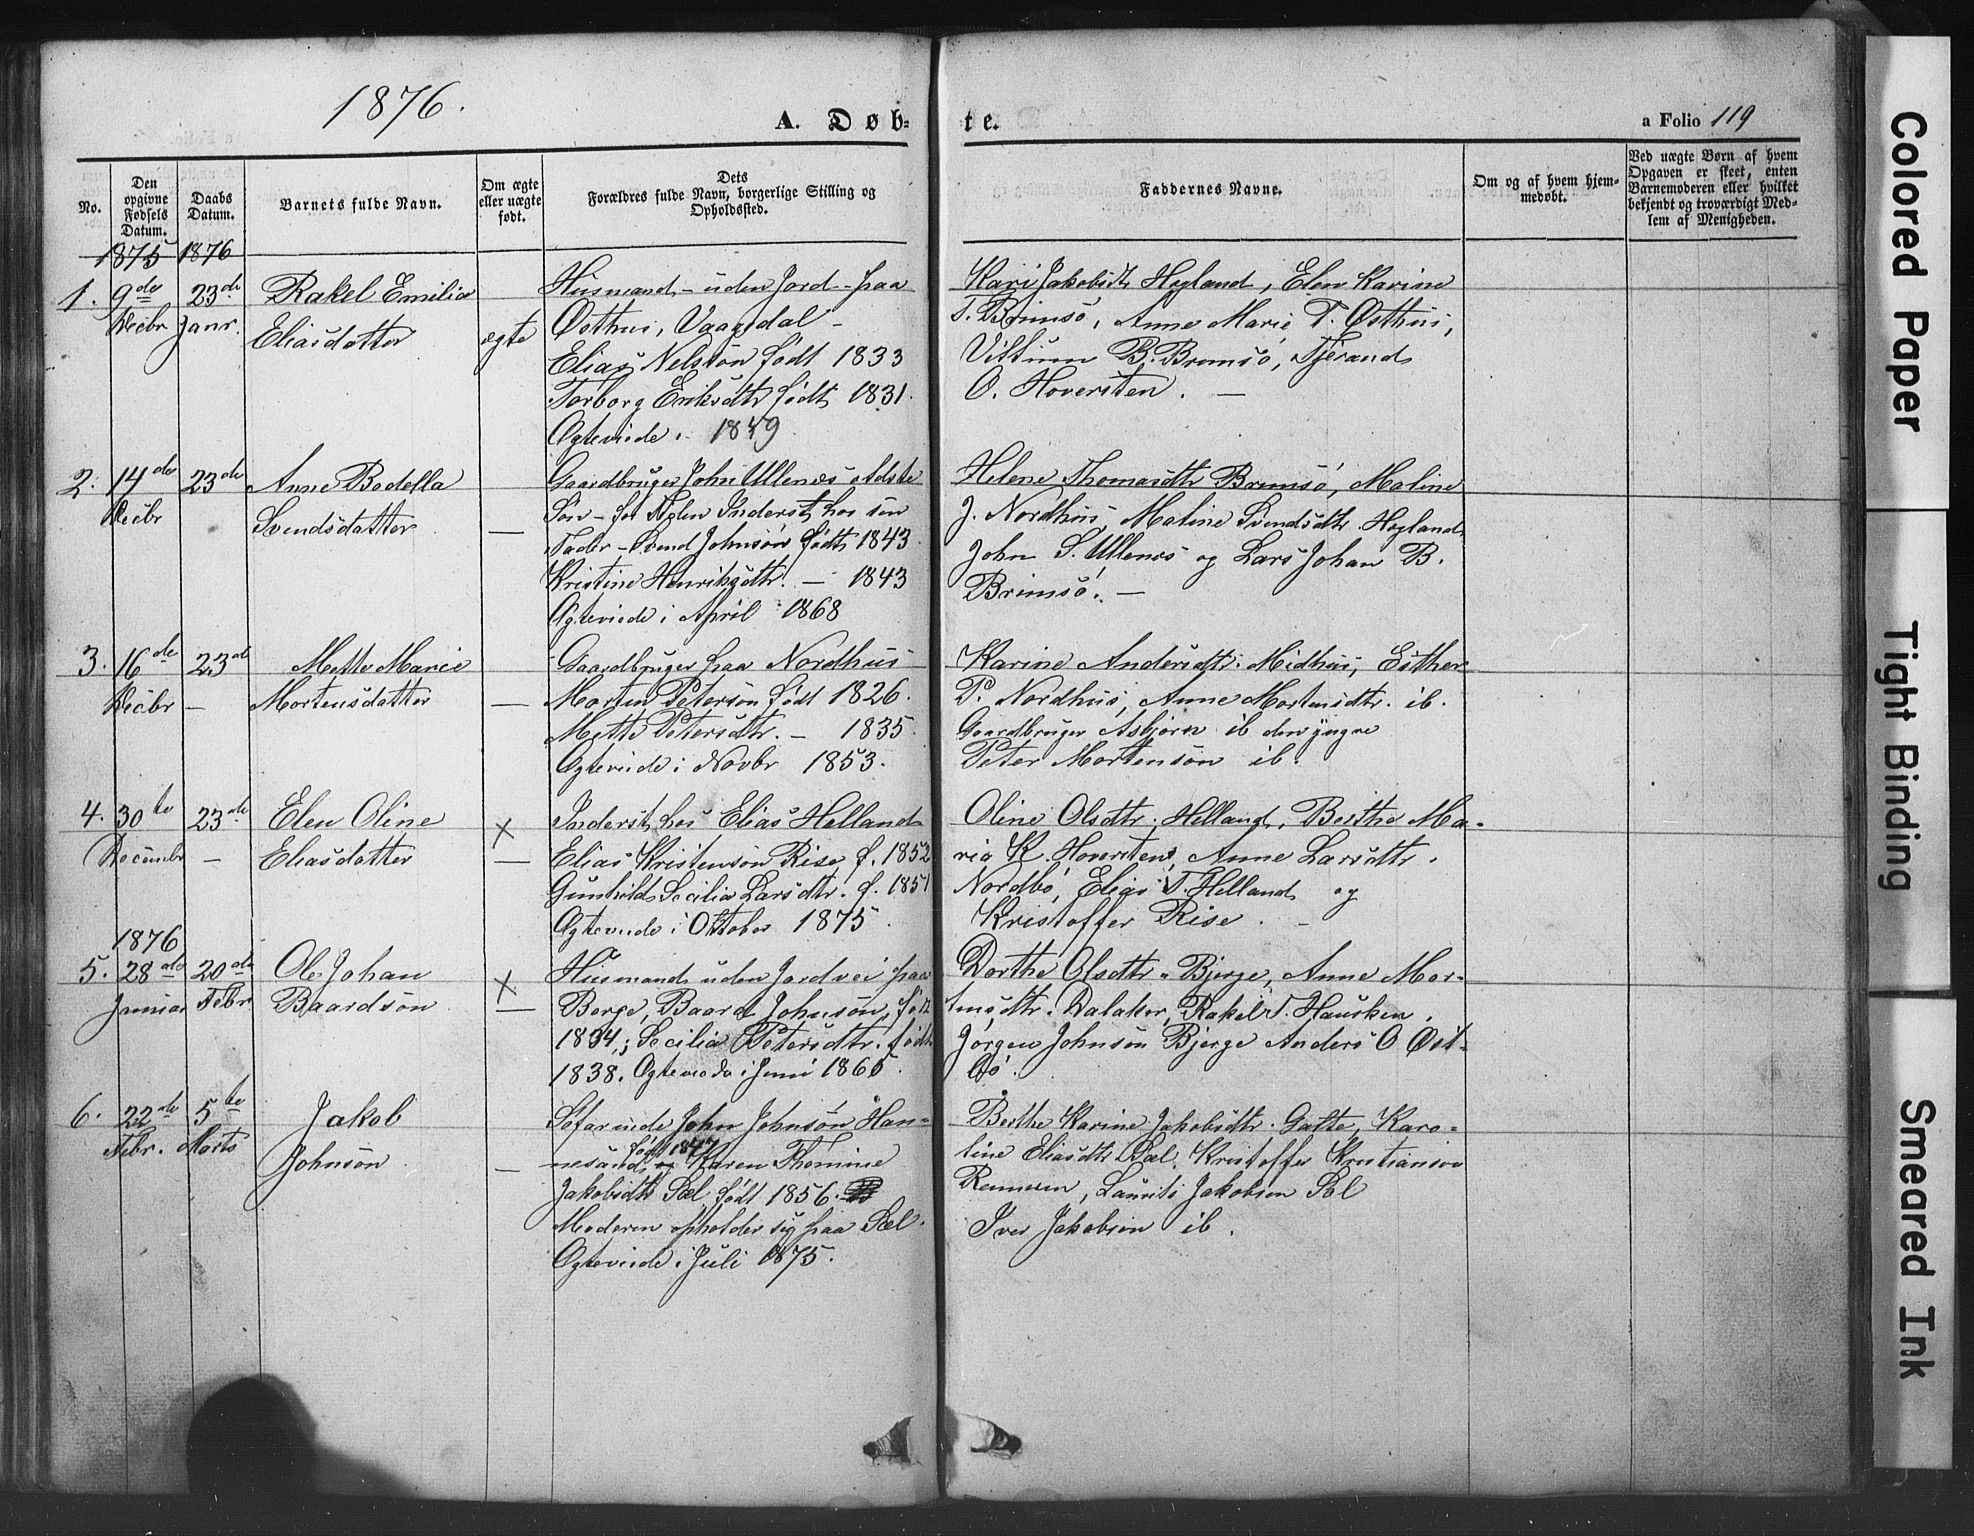 1876.
A. Døb-
te.
a Folio 119
No.
Den
opgivne
Fødsels
Datum.
Daabs
Datum.
Barnets fulde Navn.
Om ægte
eller uægte
født.
Dets
Forældres fulde Navn, borgerlige Stilling og
Opholdssted.
Faddernes Navne.
Om og af hvem hjem-
medøbt.
Ved uægte Børn af hvem
Opgaven er skeet, enten
Barnemoderen eller hvilket
bekjendt og troværdigt Med-
lem af Menigheden.
1875 1876
1. 9de 23de Rakel Emilia
Decbr Janr. Eliasdatter ægte
Husmand uden Jord paa
Østhus, Vaagedal
Elias Nelson født 1833
Torborg Eriksdtr født 1831.
Ægteviede 1849
Kari Jakobsdtr Høyland, Elen Karine
T. Brimsø, Anne Marie T. Østhus,
B. Brimsø, Tjerand
O. Hoversten. —
2. 14de 23de Anne Bodella
Decbr Svendsdatter —
Gaardbruger John Ullenes ældste
Søn Inderst hos sin
Fader - Svend Johnsøn født 1843.
Kristine Henriksdtr. — 1843
Ægteviede i April 1868
Helene Thomasdtr Brimsø, Maline
J. Nordhus, Maline Svendsdtr. Høyland
John S. Ullenes og Lars Johan B.
Brimsø. —
3. 16de 23de Mette Marie
Decbr — Mortensdatter —
Gaardbruger paa Nordhus
Morten Petersøn født 1826.
Mette Petersdtr. — 1835.
Ægteviede i Novbr 1853.
Karine Andersdtr. Midhus, Esther
P. Nordhus, Anne Mortensdtr. ib.
Gaardbruger Asbjørn ib den yngre
Peter Mortensøn ib.
4. 30te 23de Elen Oline ×
Decembr — Eliasdatter —
Inderst hos Elias Helland
Elias Kristensøn Rise f. 1852
Gunhild Secilia Larsdtr. f. 1851
Ægteviede i Oktober 1875.
Oline Olsdtr. Helland, Berthe Ma-
ria K. Hoversten, Anne Larsdtr.
Nordbø, Elias T. Helland og
Kristoffer Rise. —
1876
5. 28de 20de Ole Johan ×
Januar Febr. Baardsøn —
Husmand uden Jordvei paa
Berge, Baard Johnsøn, født
1834; Secilia Petersdtr. født
1838. Ægteviede i Juni 1865.
Dorthe Olsdtr. Bjerge, Anne Mor-
tensdtr. Dalaker, Rakel T. Hausken,
Jørgen Johnsøn Bjerge Anders O Øst-
bø.
6. 22de 5te Jakob
Febr. Marts Johnsøn —
Søfarende John Johnsøn Han-
født 1847
nesund, og Karen Thomine
Jakobsdtr Sæl født 1856.
Moderen opholder sig paa Sæl.
Ægteviede i Juli 1875.
Berthe Karine Jakobsdtr. Galte, Karo-
line Eliasdtr Sæl, Kristoffer Kristiansøn
Rennesen, Laurits Jakobsen Sæl
Iver Jakobsen ib.
Colored Paper
Tight Binding
Smeared Ink